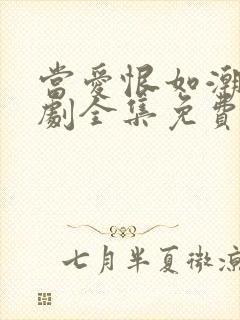 當愛恨如潮
劇全集免費
七月半夏微涼